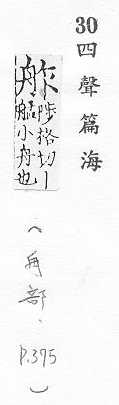 30
四聲篇海
舴
陟格切丨
艋小舟也
(舟部、P.395)